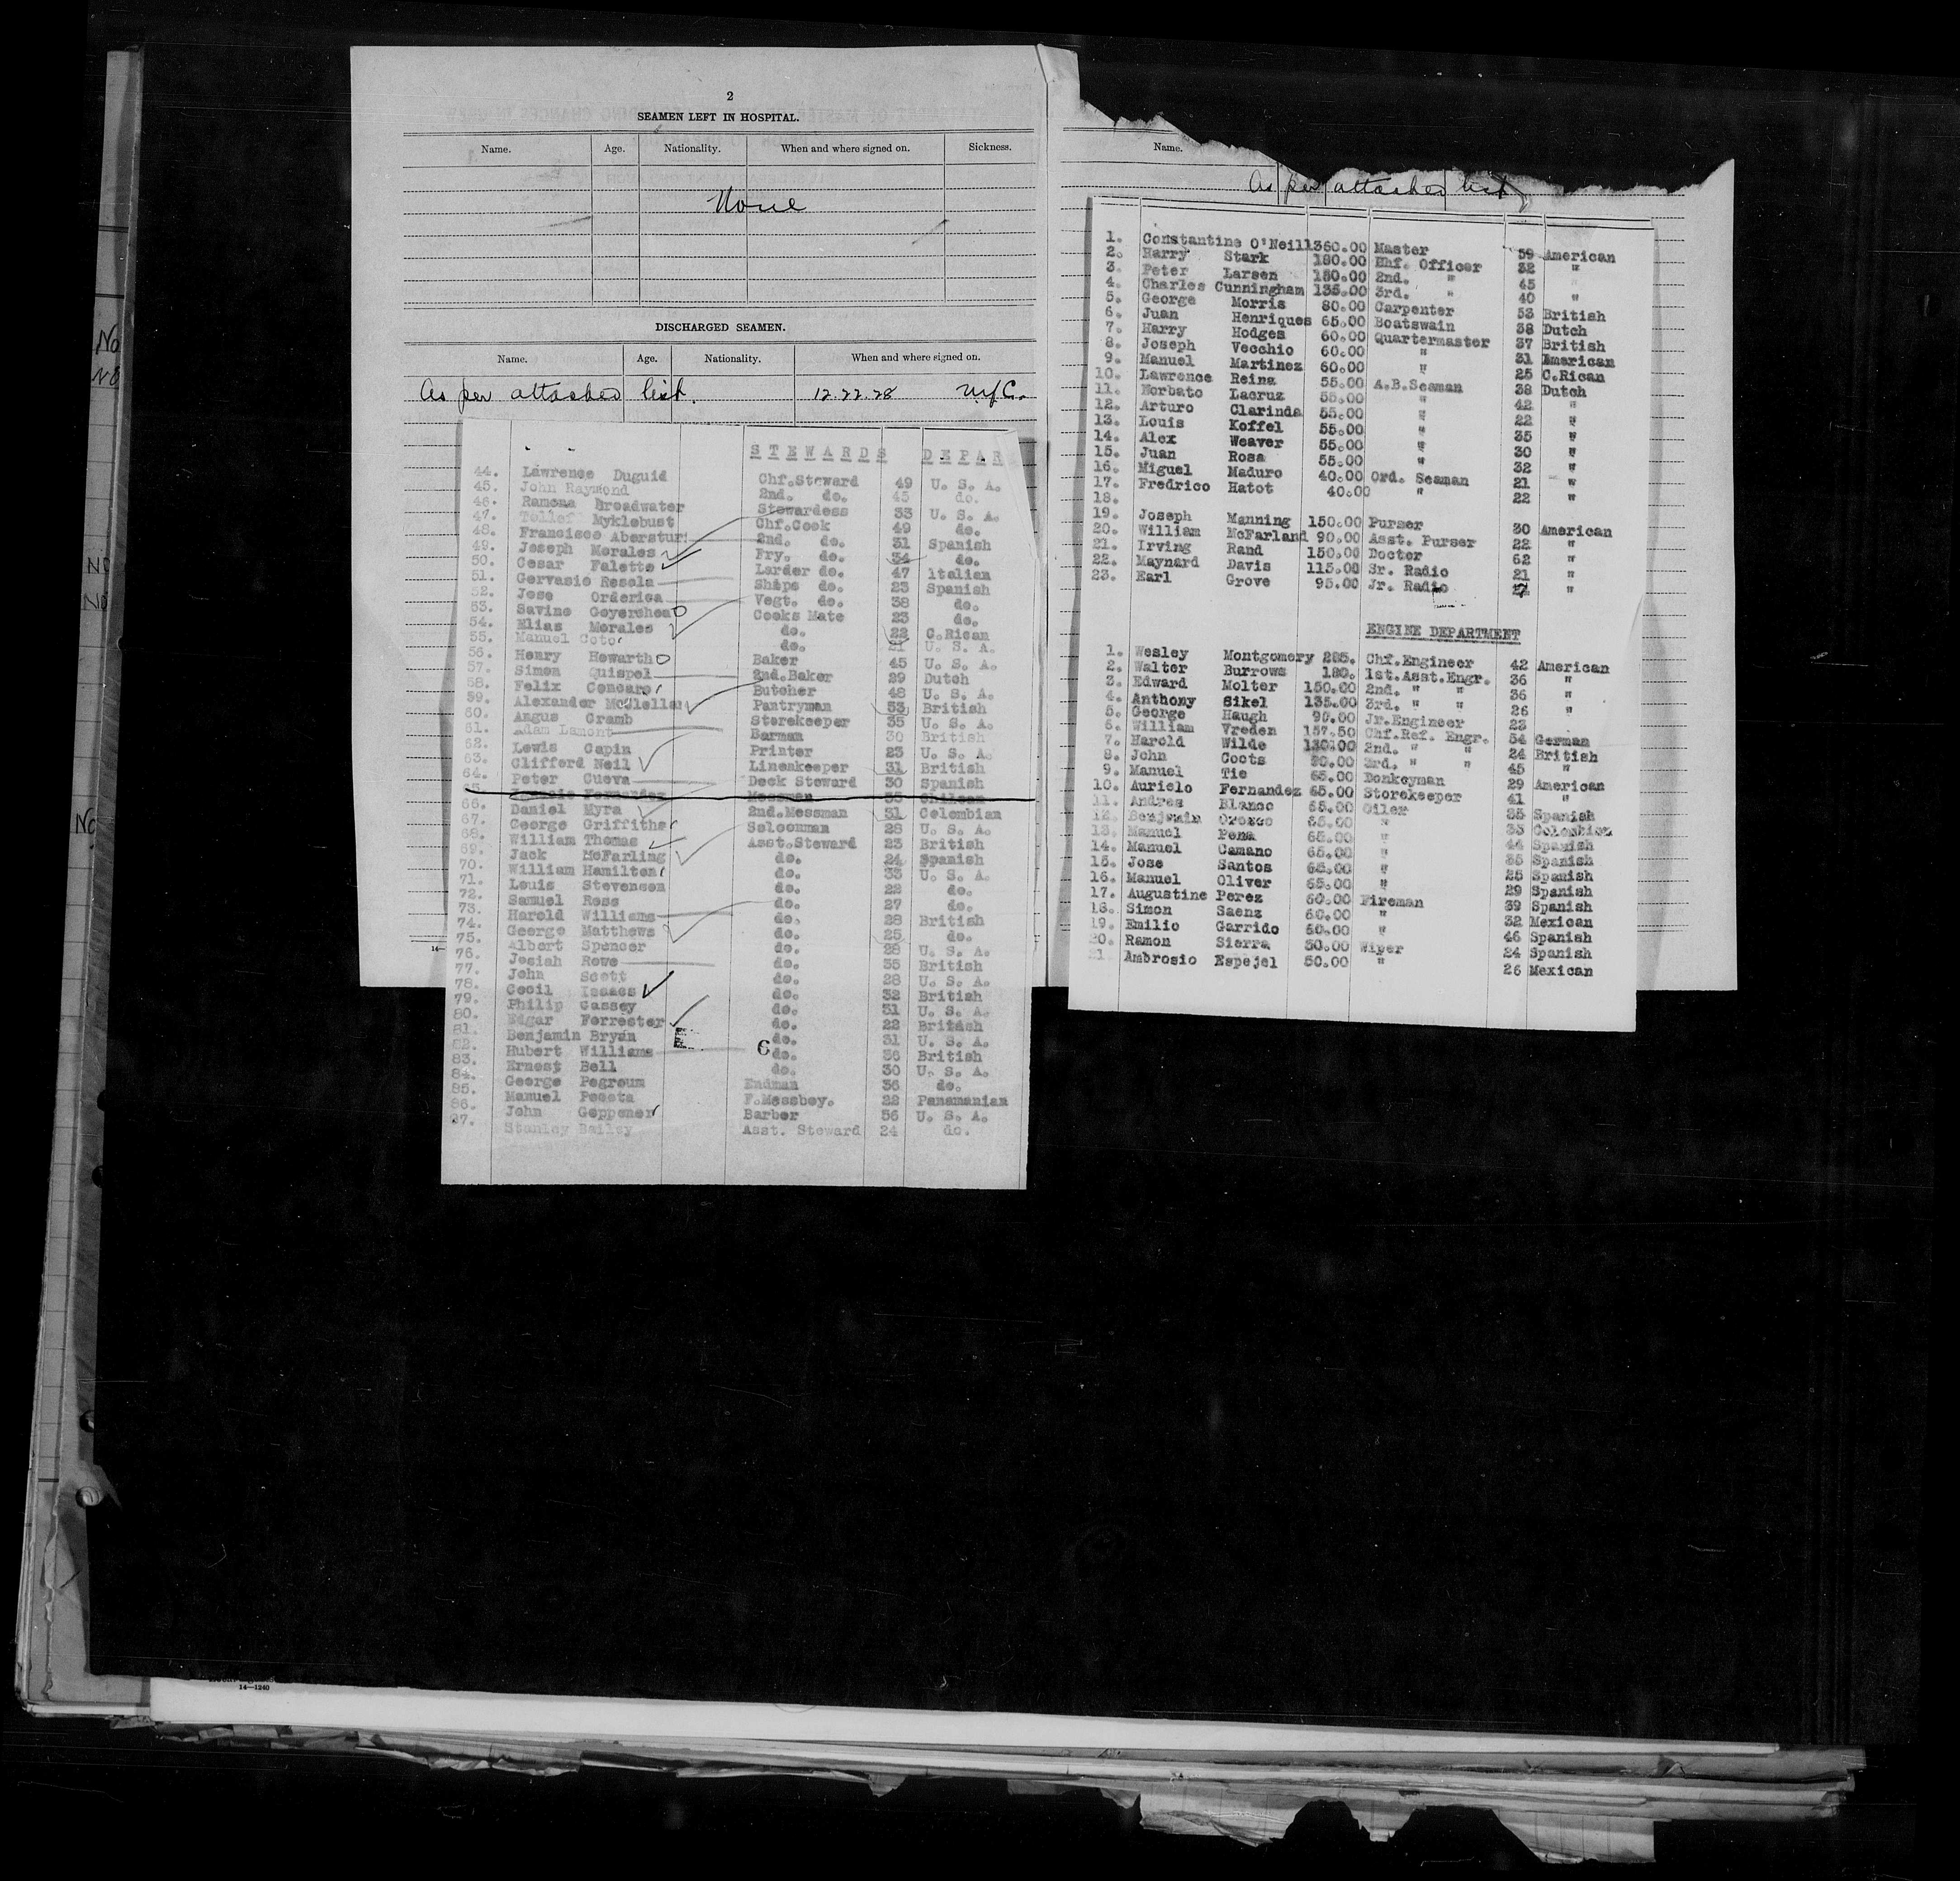 2
SEAMEN LEFT IN HOSPITAL.
Name. Age. Nationality. When and where signed on. Sickness.
None
DISCHARGED SEAMEN.
Name. Age. Nationality. When and where signed on.
As per attached list. 12.22.28 N.Y.C.
STEWARDS DEPAR
44. Lawrence Duguid Chf.Steward 49 U. S. A.
45. John Raymond 2nd. do. 45 do.
46. Ramona Broadwater Stewardess 33 U. S. A.
47. Tollef Myklebust Chf.Cook 49 do.
48. Francisco Abersturi 2nd. do. 31 Spanish
49. Joseph Morales Fry. do. 34 do.
50. Cesar Faletto Larder do. 47 Italian
51. Gervasio Resola Ships do. 23 Spanish
52. Jose Orderica Vegt. do. 38 do.
53. Savino Goyershea Cooks Mate 23 do.
54. Elias Morales do. 22 C.Rican
55. Manuel Coto do. 21 U. S. A.
56. Henry Howarth Baker 45 U. S. A.
57. Simon Quispel 2nd.Baker 29 Dutch
58. Felix Concaro Butcher 48 U. S. A.
59. Alexander McClellan Pantryman 53 British
60. Angus Cramb Storekeeper 35 U. S. A.
61. Adam Lamont Barman 30 British
62. Lewis Capin Printer 23 U. S. A.
63. Clifford Neil Linenkeeper 31 British
64. Peter Cueva Deck Steward 30 Spanish
65. Fernandez Messman 35 Chilean
66. Daniel Myra 2nd.Messman 31 Colombian
67. George Griffiths Saloonman 28 U. S. A.
68. William Thomas Asst.Steward 23 British
69. Jack McFarling do. 24 Spanish
70. William Hamilton do. 33 U. S. A.
71. Louis Stevenson do. 22 do.
72. Samuel Ross do. 27 do.
73. Harold Williams do. 28 British
74. George Matthews do. 25 do.
75. Albert Spencer do. 28 U. S. A.
76. Josiah Rowe do. 35 British
77. John Scott do. 28 U. S. A.
78. Cecil Isaacs do. 32 British
79. Philip Gassey do. 31 U. S. A.
80. Edgar Forrester do. 22 British
81. Benjamin Bryan do. 31 U. S. A.
82. Hubert Williams do. 36 British
83. Ernest Bell do. 30 U. S. A.
84. George Pegroum Endman 36 do.
85. Manuel Peseta F.Messboy. 22 Panamanian
86. John Geppener Barber 56 U. S. A.
87. Stanley Bailey Asst. Steward 24 do.
Name.
As per attached list
1. Constantine O'Neill 360.00 Master 59 American
2. Harry Stark 190.00 Chf. Officer 32 "
3. Peter Larsen 150.00 2nd. " 45 "
4. Charles Cunningham 135.00 3rd. " 40 "
5. George Morris 80.00 Carpenter 53 British
6. Juan Henriques 65.00 Boatswain 38 Dutch
7. Harry Hodges 60.00 Quartermaster 37 British
8. Joseph Vecchio 60.00 " 31 American
9. Manuel Martinez 60.00 " 25 C.Rican
10. Lawrence Reina 55.00 A.B.Seaman 38 Dutch
11. Norbato Lacruz 55.00 " 42 "
12. Arturo Clarinda 55.00 " 22 "
13. Louis Koffel 55.00 " 35 "
14. Alex Weaver 55.00 " 30 "
15. Juan Rosa 55.00 " 32 "
16. Miguel Maduro 40.00 Ord. Seaman 21 "
17. Fredrico Hatot 40.00 " 22 "
18.
19. Joseph Manning 150.00 Purser 30 American
20. William McFarland 90.00 Asst. Purser 22 "
21. Irving Rand 150.00 Doctor 62 "
22. Maynard Davis 115.00 Sr. Radio 21 "
23. Earl Grove 95.00 Jr. Radio "
ENGINE DEPARTMENT
1. Wesley Montgomery 295. Chf.Engineer 42 American
2. Walter Burrows 190. 1st.Asst.Engr. 36 "
3. Edward Molter 150.00 2nd. " " 36 "
4. Anthony Sikel 135.00 3rd. " " 26 "
5. George Haugh 90.00 Jr.Engineer 23
6. William Vreden 157.50 Chf.Ref. Engr. 54 German
7. Harold Wilde 130.00 2nd. " " 24 British
8. John Coots 90.00 3rd. " " 45 "
9. Manuel Tie 65.00 Donkeyman 29 American
10. Aurielo Fernandez 65.00 Storekeeper 41 "
11. Andres Blanco 65.00 Oiler 35 Spanish
12. Benjamin Orosco 65.00 " 33 Colombian
13. Manuel Pena 65.00 " 44 Spanish
14. Manuel Camano 65.00 " 35 Spanish
15. Jose Santos 65.00 " 25 Spanish
16. Manuel Oliver 65.00 " 29 Spanish
17. Augustine Perez 60.00 Fireman 39 Spanish
18. Simon Saenz 60.00 " 32 Mexican
19. Emilio Garrido 60.00 " 46 Spanish
20. Ramon Sierra 50.00 Wiper 24 Spanish
21. Ambrosio Espejel 50.00 " 26 Mexican
No
No
No
No
14—1240